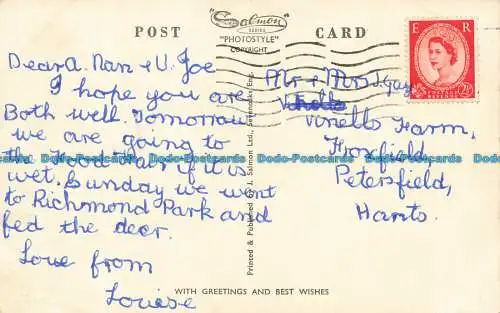 "Salmon
SERIES
"PHOTOSTYLE"
COPYRIGHT
POST CARD
E R
POSTAGE REVENUE
2½D
Dear A. Nan & U. Joe
I hope you are
Both well. Tomorrow
we are going to
the Food Fair if it is
wet. Sunday we went
to Richmond Park and
fed the deer.
Love from
Louise
Mr & Mrs J Guy
Vinells Farm,
Froxfield,
Petersfield,
Hants.
Printed & Published by J. Salmon Ltd., Sevenoaks, Eng.
WITH GREETINGS AND BEST WISHES
Dodo-Postcards Dodo-Postcards Dodo-Postcards Dodo-Postcards